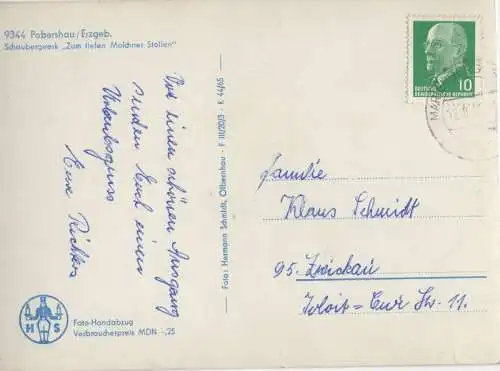 9344 Pobershau/Erzgeb.
Schaubergwerk „Zum tiefen Molchner Stollen"
einen schönen Ausgang
senden Euch einen
Urlaubsgruss
Eure Richters
Foto: Hermann Schmidt, Olbernhau - F III/20/3 - K 44/65
H S
Foto-Handabzug
Verbraucherpreis MDN -,25
DEUTSCHE
DEMOKRATISCHE REPUBLIK
10
MAR
Familie
Klaus Schmidt
95 Zwickau
Str. 11.